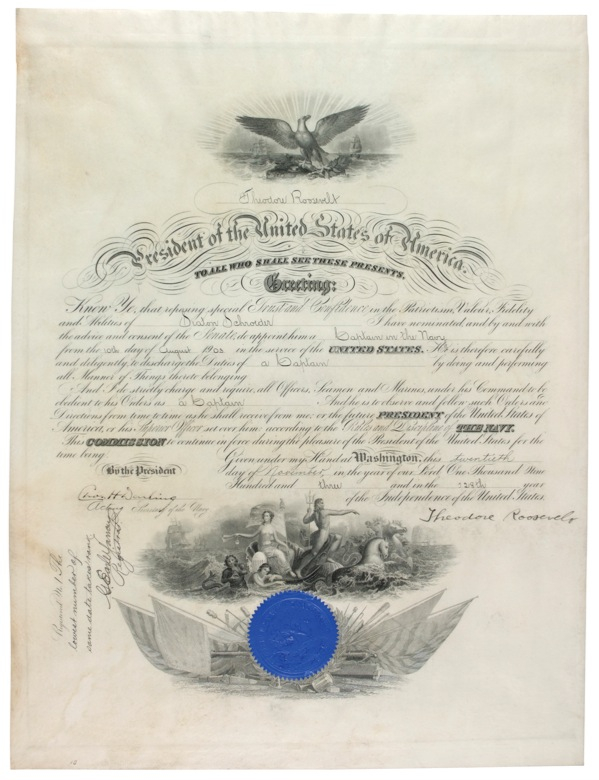 Theodore Roosevelt
President of the United States of America.
TO ALL WHO SHALL SEE THESE PRESENTS,
Greeting:
Know Ye, that reposing special Trust and Confidence in the Patriotism, Valour, Fidelity
and Abilities of Seaton Schroeder I have nominated and by and with
the advice and consent of the Senate, do appoint him a Captain in the Navy
from the 10th day of August 1903 in the service of the UNITED STATES. He is therefore carefully
and diligently to discharge the Duties of a Captain by doing and performing
all Manner of Things thereto belonging.
And I do strictly charge and require all Officers, Seamen and Marines, under his Command to be
obedient to his Orders as a Captain And he is to observe and follow such Orders and
Directions from time to time as he shall receive from me, or the future PRESIDENT of the United States of
America, or his Superior Officer set over him, according to the Rules and Discipline of THE NAVY.
This COMMISSION to continue in force during the pleasure of the President of the United States for the
time being.
Given under my Hand at Washington, this twentieth
By the President
day of November in the year of our Lord One Thousand Nine
Hundred and three and in the 128th year
of the Independence of the United States
Chas. H. Darling
Acting Secretary of the Navy
Theodore Roosevelt
Registrar
No. 1 The
lowest number of
same date takes rank